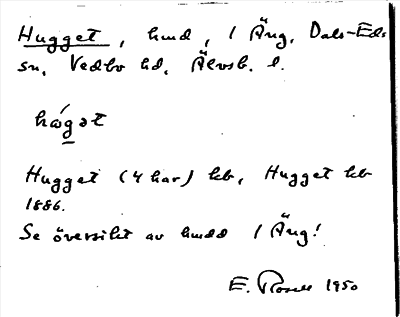 Hugget, hmd, 1 Äng, Dals-Eds
sn, Vedbo hd, Älvsb. l.
hǿgət
Hugget (4 har) kb, Hugget kb
1886.
Se översikt av hmdd 1 Äng!
E. Rosell 1950